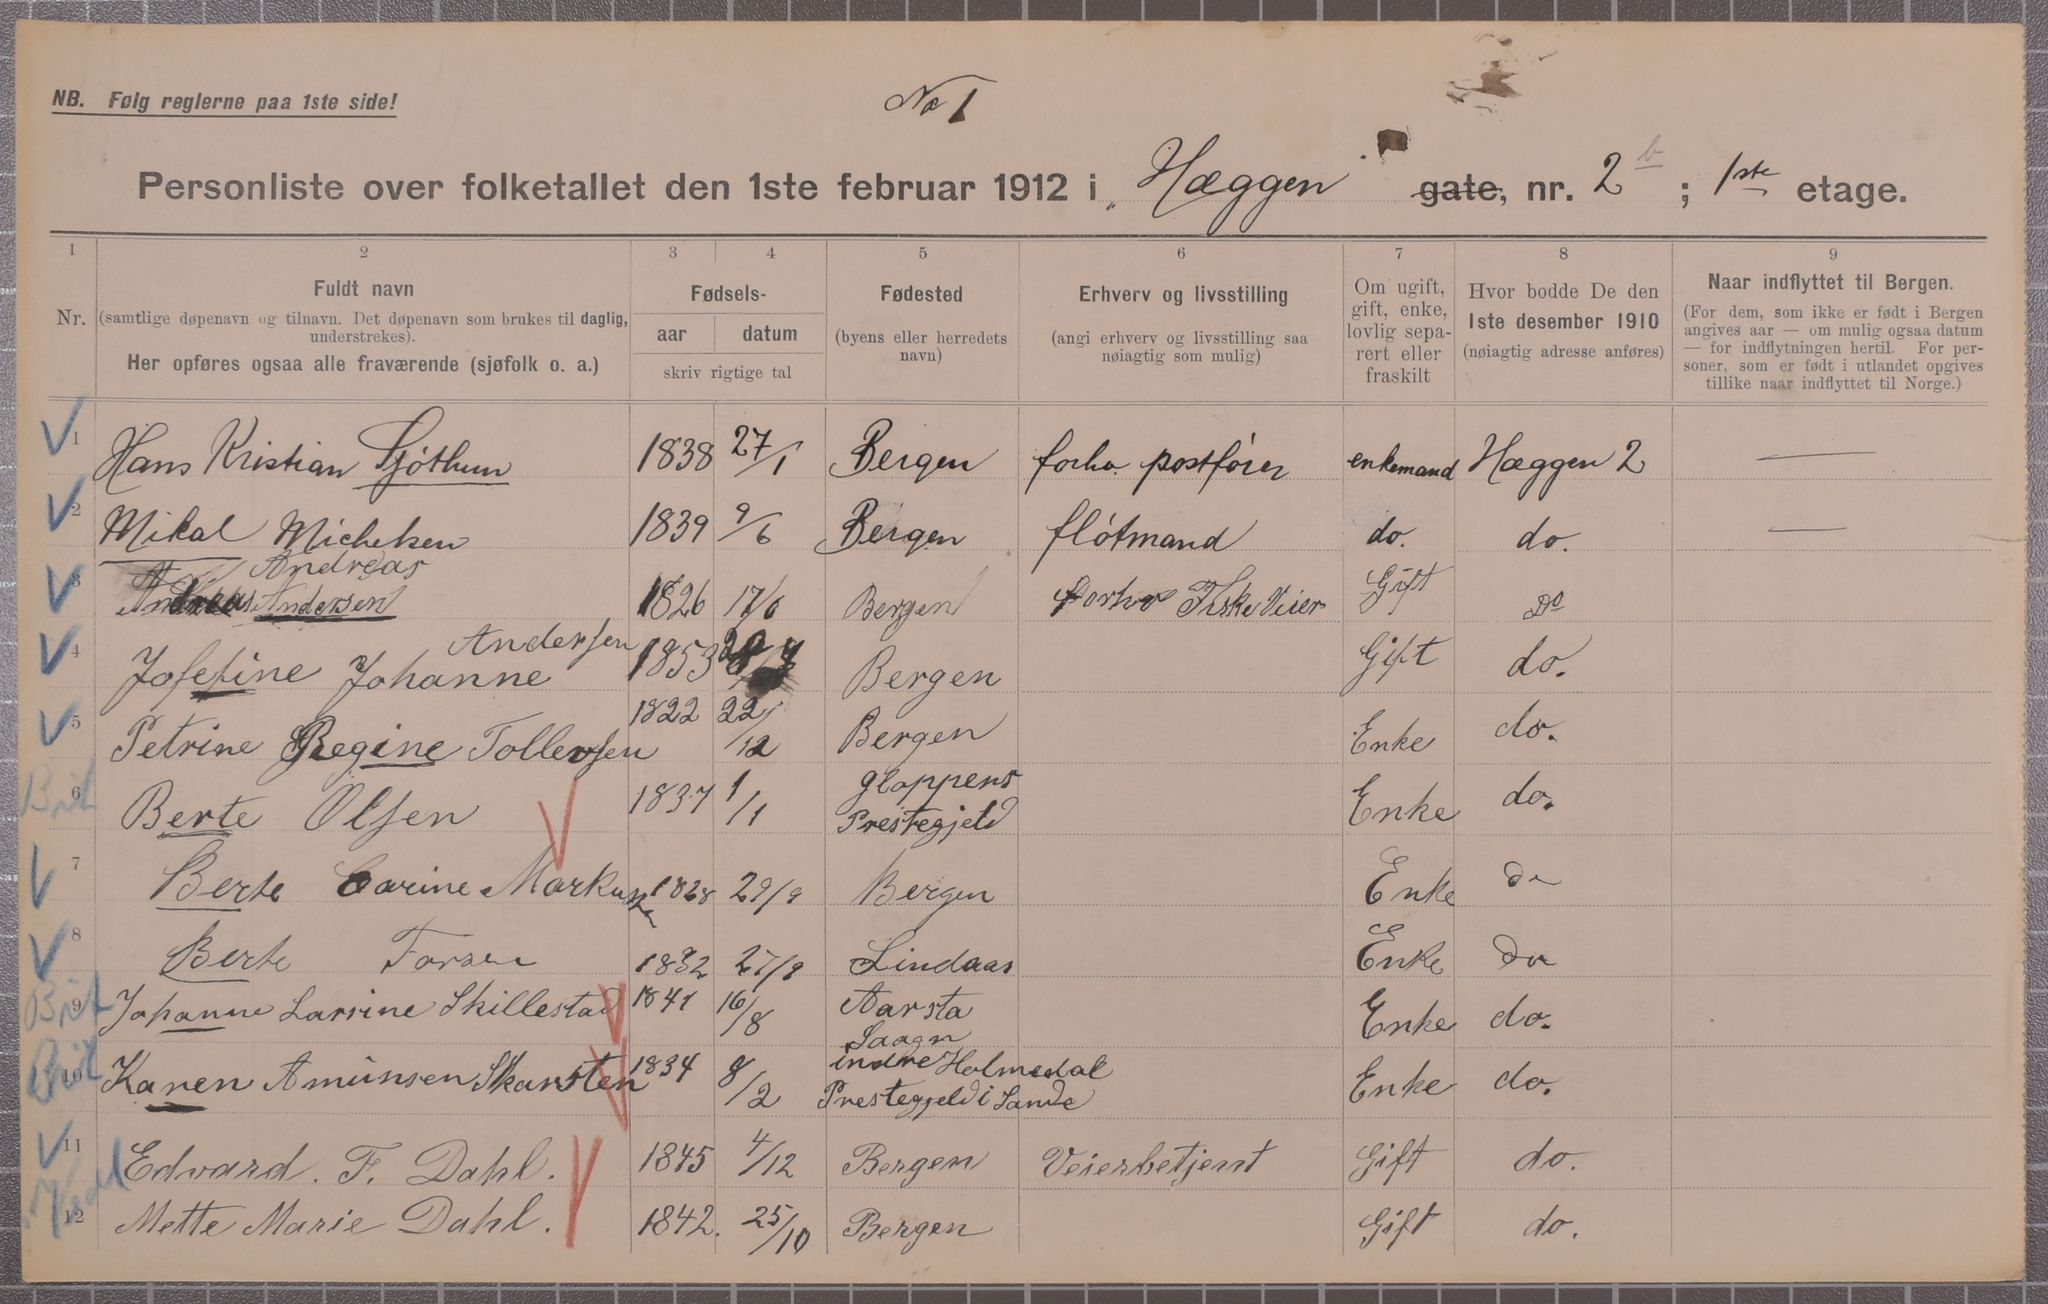 NB. Følg reglerne paa 1ste side!
No 1
Personliste over folketallet den 1ste februar 1912 i „Hæggen" gate, nr. 2 b ; 1ste etage.
1 2 3 4 5 6 7 8 9
Nr.
Fuldt navn
(samtlige døpenavn og tilnavn. Det døpenavn som brukes til daglig, understrekes).
Her opføres ogsaa alle fraværende (sjøfolk o. a.)
Fødsels-
aar datum
skriv rigtige tal
Fødested
(byens eller herredets
navn)
Erhverv og livsstilling
(angi erhverv og livsstilling saa
nøiagtig som mulig)
Om ugift,
gift, enke,
lovlig sepa-
rert eller
fraskilt
Hvor bodde De den
1ste desember 1910
(nøiagtig adresse anføres)
Naar indflyttet til Bergen.
(For dem, som ikke er født i Bergen
angives aar — om mulig ogsaa datum
— for indflytningen hertil. For per-
soner, som er født i utlandet opgives
tillike naar indflyttet til Norge.)
1 Hans Kristian Sjøthun 1838 27/1 Bergen forhv. postfører enkemand Hæggen 2 —
2 Mikal Michelsen 1839 9/6 Bergen fløtmand do. do. —
Andreas
3 Andreas Andersen 1826 17/6 Bergen forhv Fiske Veier Gift Do
Andersen
4 Josefine Johanne 1853 Bergen Gift do.
5 Petrine Regine Tollevsen 1822 22/12 Bergen Enke do.
6 Berte Olsen 1837 1/1 Gloppens Prestegjeld Enke do.
7 Berte Carine Markussen 1828 29/9 Bergen Enke do
8 Berte Forsen 1832 27/9 Lindaas Enke do
9 Johanne Larsine Skillestad 1841 16/8 Aarsta Saagn Enke do.
10 Karen Amunsen Skarsten 1834 8/2 indre Holmedal Prestegjeld i Sande Enke do.
11 Edvard. F. Dahl. 1845 4/12 Bergen Veierbetjent Gift do.
12 Mette Marie Dahl. 1842. 25/10 Bergen Gift do.